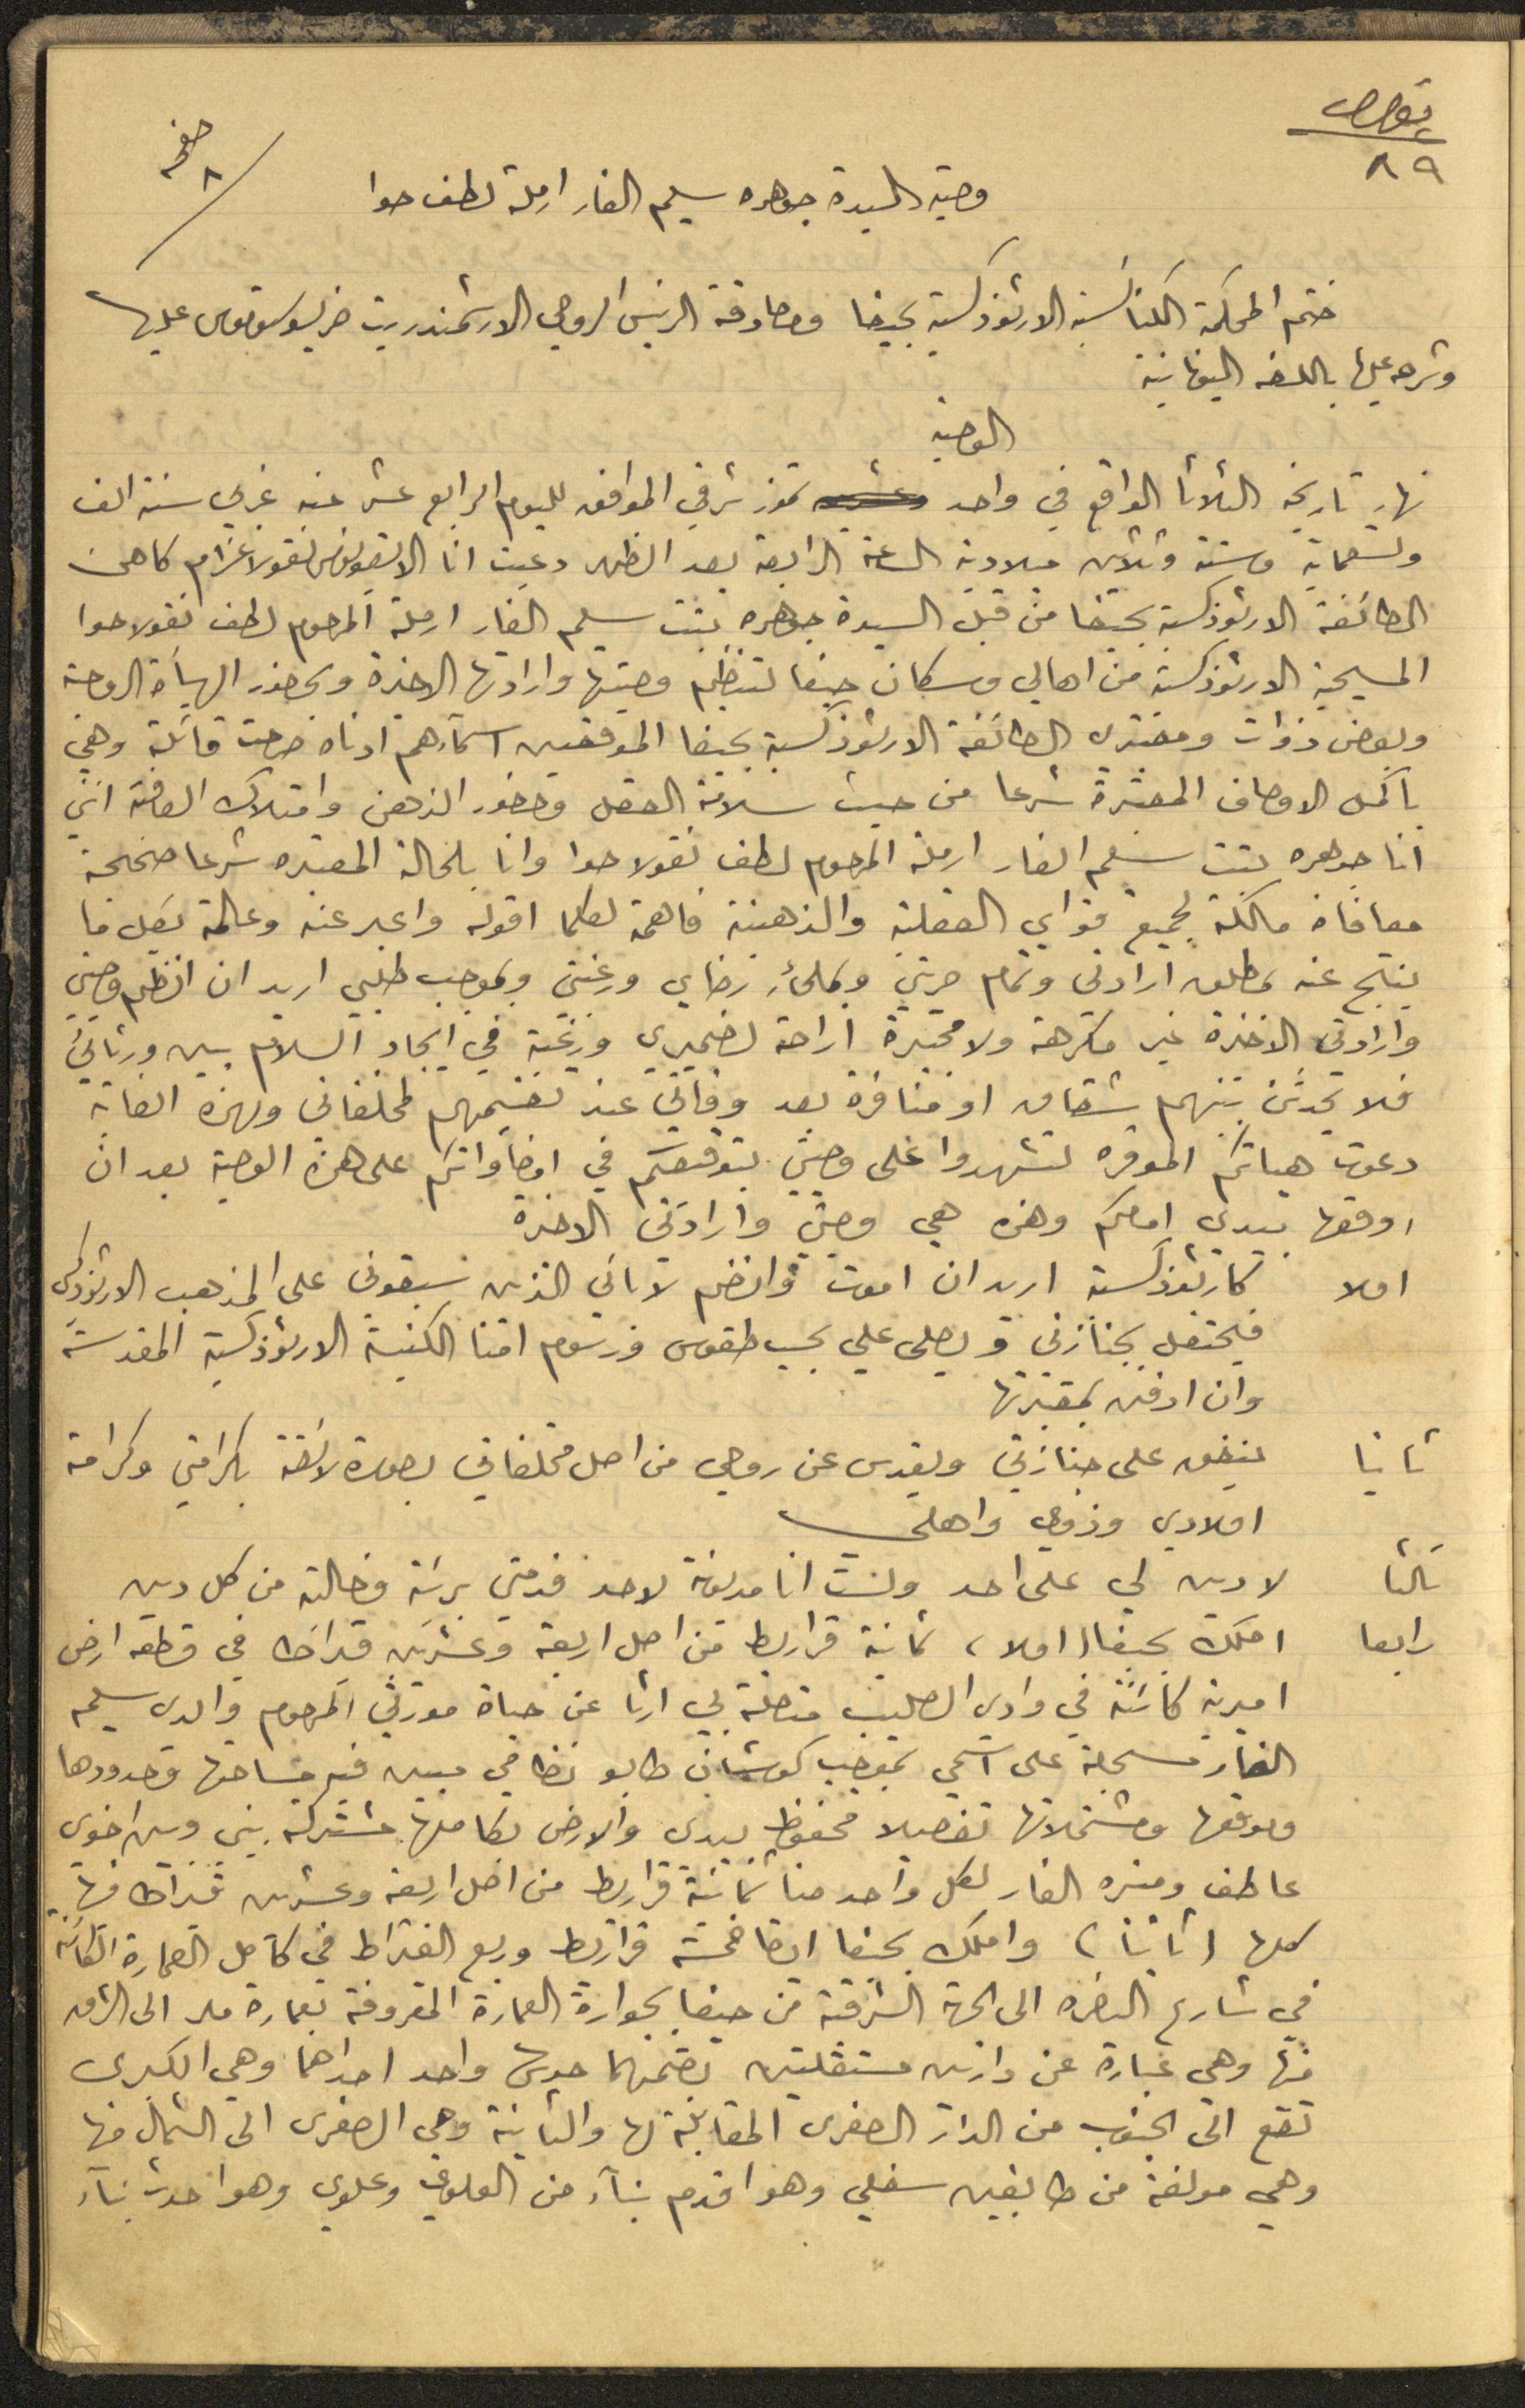 ٨٩
صفحة ٨
وصية السيدة جوهره سليم الفار ارملة لطف حوا
ختم المحكمة الكنائسية الارثوذكسية بحيفا ومصادقة الرئيس الروحي الارشمندريت خريسوستوموس عليها
وشرحه عليها باللغه اليونانية
الوصية
نهار تاريخه الثلاثا الواقع في واحد تموز شرقي الموافق لليوم الرابع عشر منه غربي سنة الف
وتسعماية وستة وثلاثين ميلادية الساعة الرابعة بعد الظهر دعيت انا نقولا غرام كاهن
الطائفة الارثوذكسية بحيفا من قبل السيدة جوهره بنت سليم الفار ارملة المرحوم لطف نقولا حوا
المسيحية الارثوذكسية من اهالي وسكان حيفا لتنظيم وصيتها وارادتها الاخيرة وبحضور الهيأة الروحية
وبعض ذوات ومعتبري الطائفة الارثوذكسية بحيفا الموقعين اسمآءهم ادناه صرحت قائلة وهي
بأكمل الاوصاف المعتبرة شرعا من حيث سلامة العقل وحضور الذهن وامتلاك العافية انني
انا جوهره بنت سليم الفار ارملة المرحوم لطف نقولا حوا وانا بالحالة المعتبره شرعا صحيحة
معافاة مالكة لجميع قواي العقلية والذهنية فاهمة لكلما اقوله واعبر عنه وعالمة بكل ما
ينتج عنه بمطلق ارادتي وتمام حريتي وبملئ رضاي ورغبتي وبموجب طلبي اريد ان انظم وصيتي
وارادتي الاخيرة غير مكرهة ولا مجبرة اراحة لضميري ورغبة في ايجاد السلام بين ورثائي
فلا يحدث بينهم شقاق او منافرة بعد وفاتي عند تقسيمهم لمخلفاتي ولهذه الغاية
دعوت هيأتكم الموقره لتشهدوا على وصيتي بتوقيعكم في امضاواتكم على هذه الوصية بعد ان
اوقعها بيدي امامكم وهذه هي وصيتي وارادتي الاخيرة
اولا كارثوذكسية اريد ان اموت وانضم لآبائي الذين سبقوني على المذهب الارثوذكسي
فيحتفل بجنازتي ويصلى علي بحسب طقوس ورسوم امنا الكنيسة الارثوذكسية المقدسة
وان ادفن بمقبرتها
ثانيا ينفق على جنازتي ويقدس عن روحي من اصل مخلفاتي بصورة لائقة بكرامتي وكرامة
اولادي وذوي واهلي
ثالثا لا دين لي على احد ولست انا مديونة لاحد فذمتي بريئة وخالية من كل دين
رابعا املك بحيفا (اولا) ثمانية قراريط من اصل اربعة وعشرين قيراطا في قطعة ارض
اميرية كائنة في وادي الصليب متصلة لي ارثا عن حياة مورثي المرحوم والدي سليم
الفار مسجلة على اسمي بموجب كوشان طابو نظامي مبين فيه مساحتها وحدودها
وموقعها ومشتملاتها تفصيلا محفوظ بيدي والارض بكاملها مشتركه بيني وبين اخوي
عاطف ومنيره الفار لكل واحد منا ثمانية قراريط من اصل اربعة وعشرين قيراطا فيها
كلها (ثانيا) واملك بحيفا ايضا خمسة قراريط وربع القيراط في كامل العمارة الكائنة
في شارع الناصره الى الجهة الشرقية من حيفا بجوارة العمارة المعروفة بعمارة ملر الى الشرق
منها وهي عبارة عن دارين مستقلتين يضمهما حوش واحد احداهما وهي الكبرى
تقع الى الجنوب من الدار الصغرى المقابلة لها والثانية وهي الصغرى الى الشمال منها
وهي مولفة من طابقين سفلي وهو اقدم بنآء من العلوي وعلوي وهو احدث بنآء